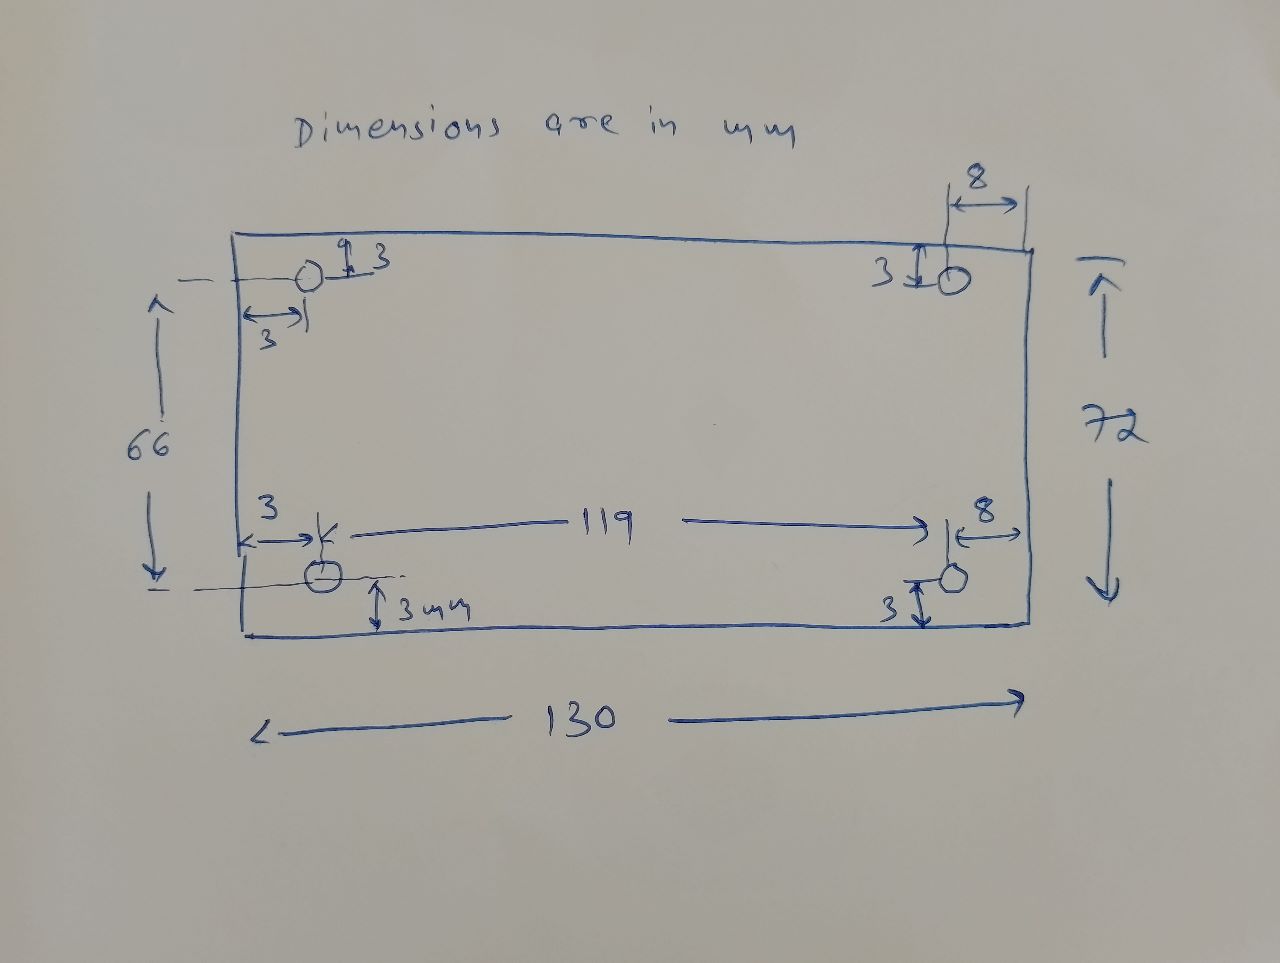 Dimensions are in mm
8
3
3
3
66
72
3
119
8
3mm
3
130